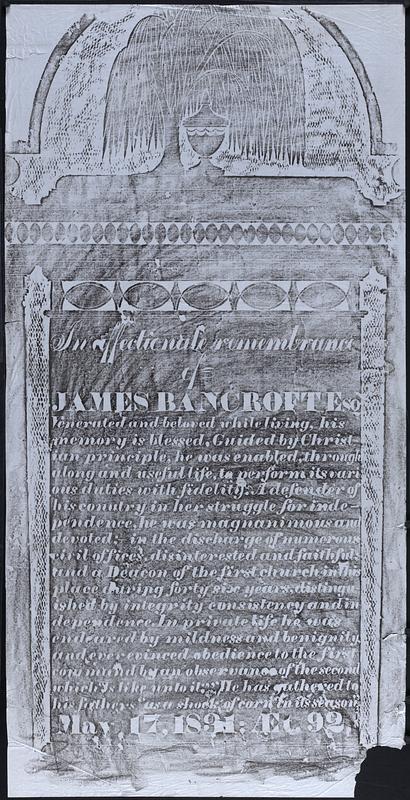 In affectionate remembrance
of
JAMES BANCROFT Esq.
Venerated and beloved while living, his
memory is blessed. Guided by Christ-
ian principle, he was enabled, through
along and useful life, to perform its vari
ous duties with fidelity. A defender of
his country in her struggle for inde-
pendence, he was magnanimous and
devoted; in the discharge of numerous
civil offices, disinterested and faithful;
and a Deacon of the first church in this
place during forty six years, distingu
ished by integrity consistency and in
dependence. In private life he was
endeared by mildness and benignity
and ever evinced obedience to the first
command by an observance of the second
which is like unto it: He has gathered to
his fathers as a shock of corn in its season
May, 17, 1831; Æt. 92.